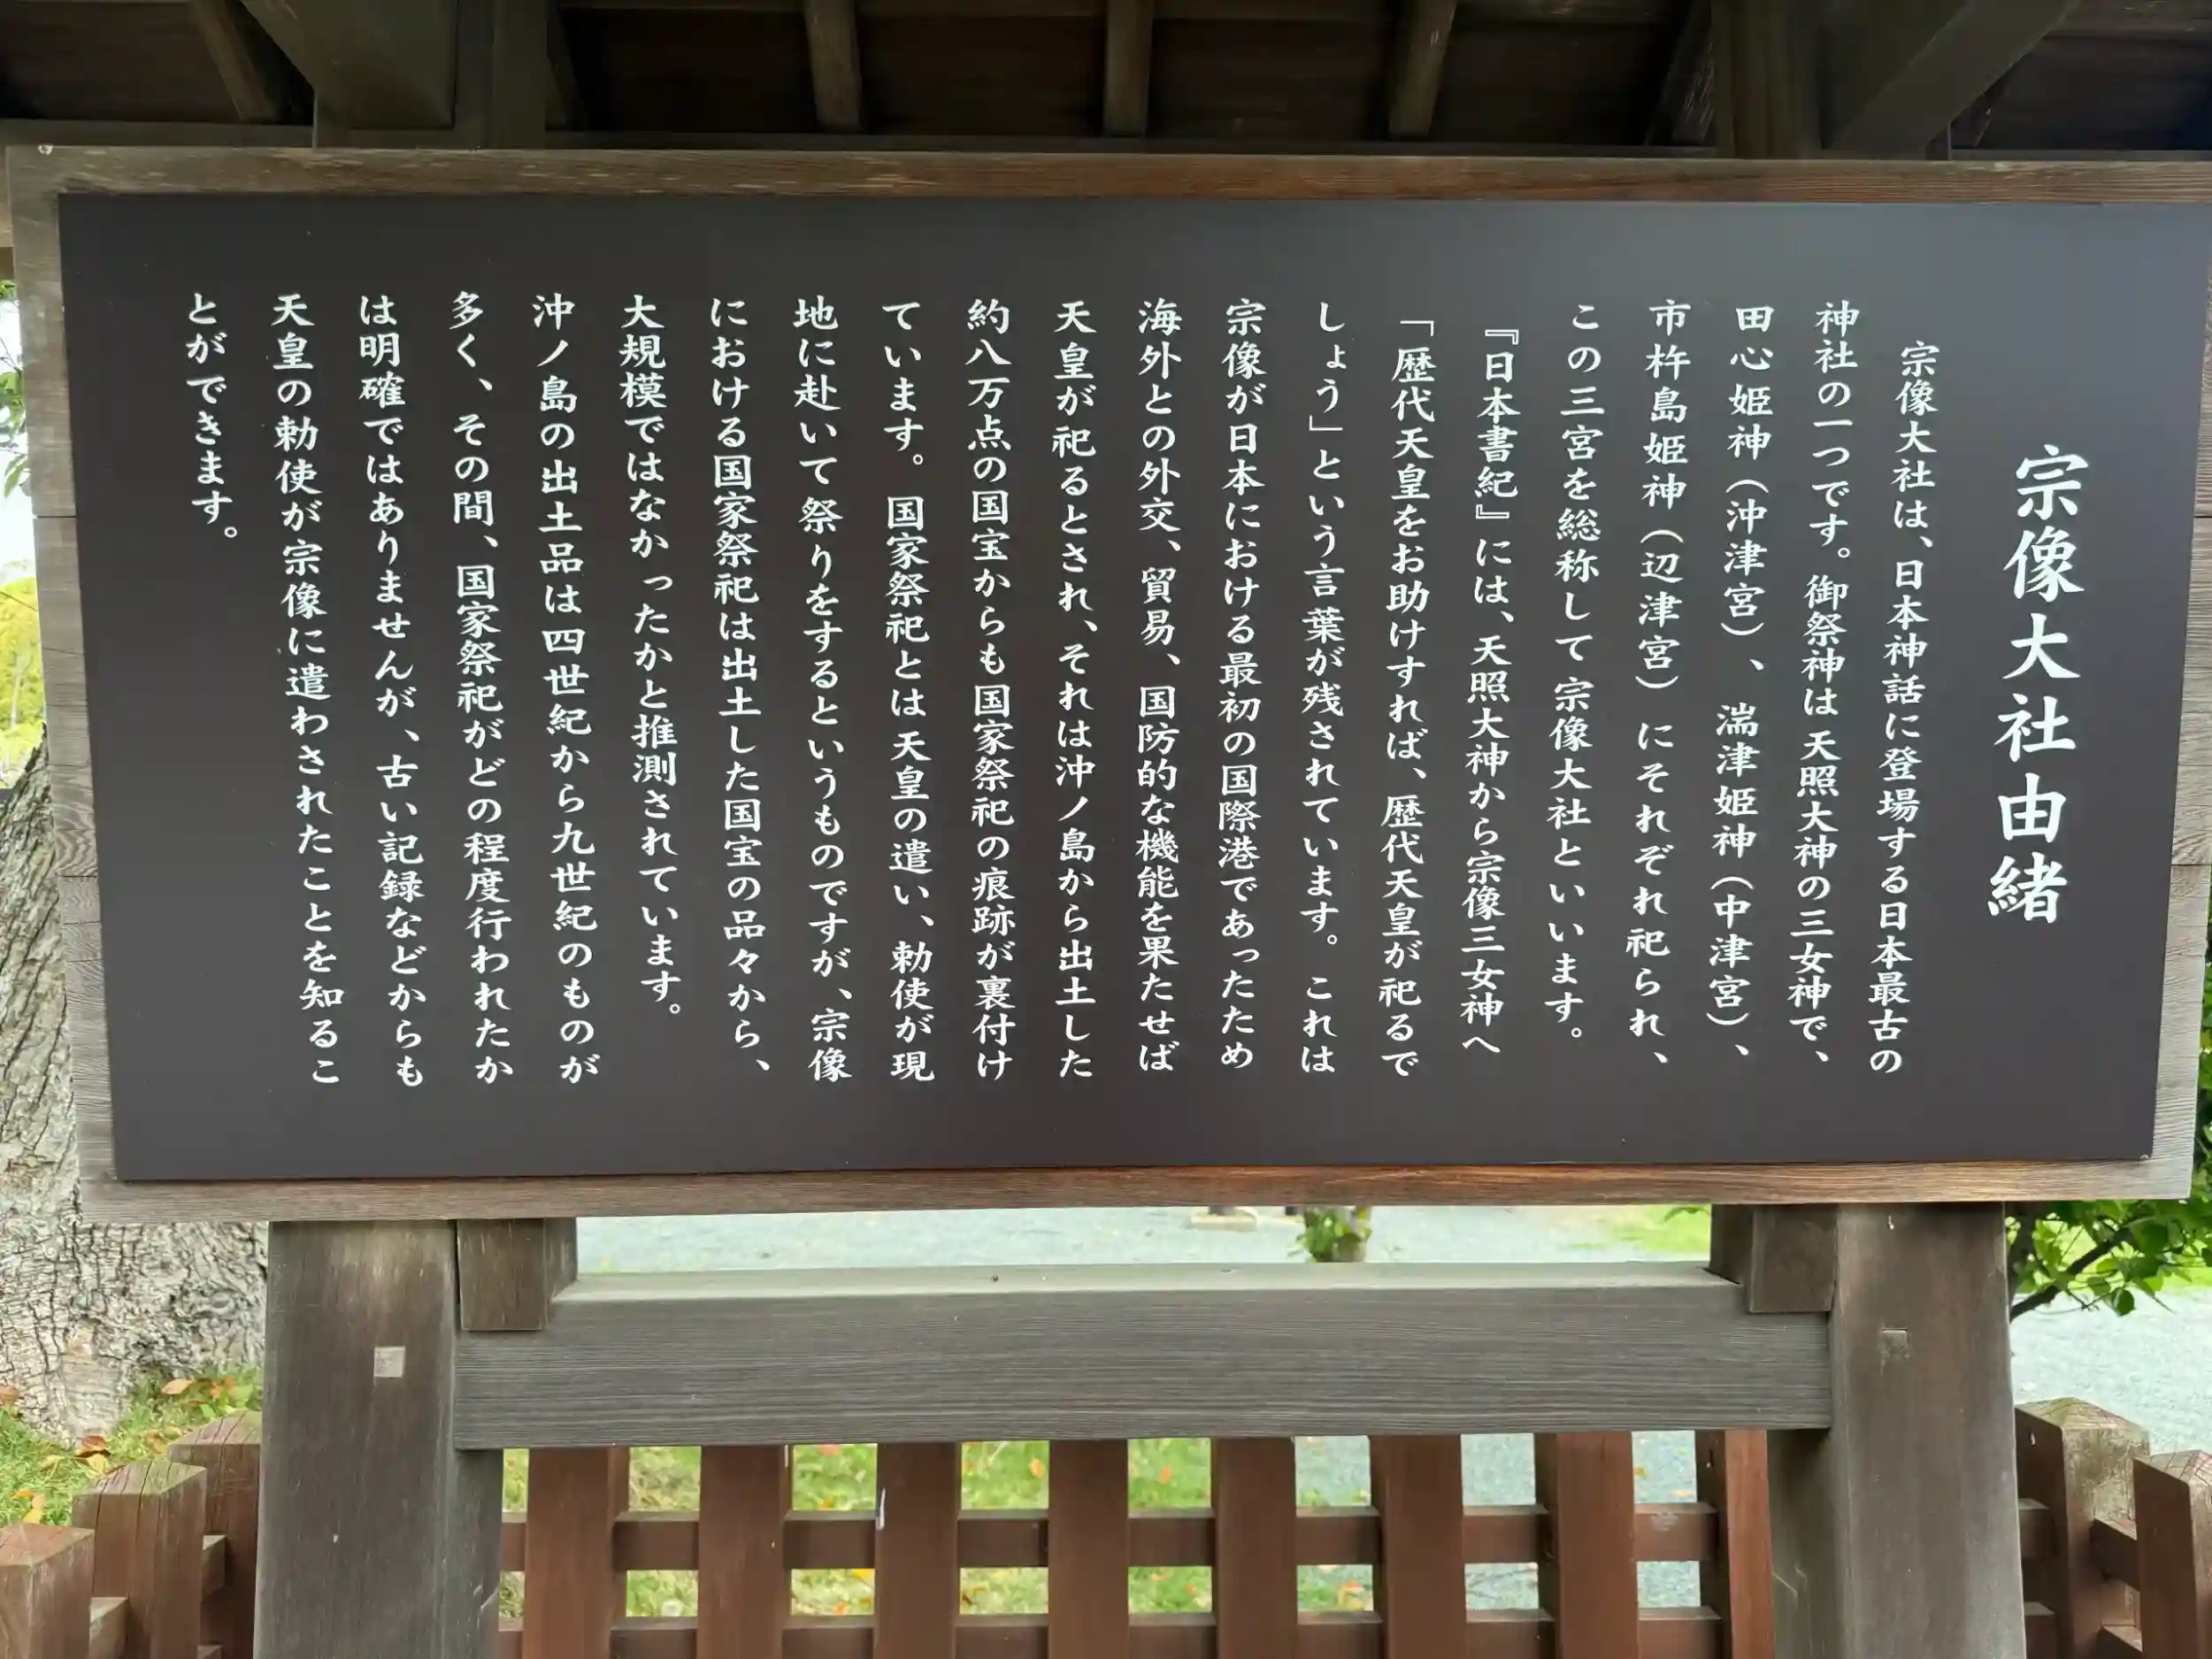 宗像大社由緒
宗像大社は、日本神話に登場する日本最古の
神社の一つです。御祭神は天照大神の三女神で、
田心姫神(沖津宮)、湍津姫神(中津宮)、
市杵島姫神(辺津宮)にそれぞれ祀られ、
この三宮を総称して宗像大社といいます。
『日本書紀』には、天照大神から宗像三女神へ
「歴代天皇をお助けすれば、歴代天皇が祀るで
しょう」という言葉が残されています。これは
宗像が日本における最初の国際港であったため
海外との外交、貿易、国防的な機能を果たせば
天皇が祀るとされ、それは沖ノ島から出土した
約八万点の国宝からも国家祭祀の痕跡が裏付け
ています。国家祭祀とは天皇の遣い、勅使が現
地に赴いて祭りをするというものですが、宗像
における国家祭祀は出土した国宝の品々から、
大規模ではなかったかと推測されています。
沖ノ島の出土品は四世紀から九世紀のものが
多く、その間、国家祭祀がどの程度行われたか
は明確ではありませんが、古い記録などからも
天皇の勅使が宗像に遣わされたことを知るこ
とができます。